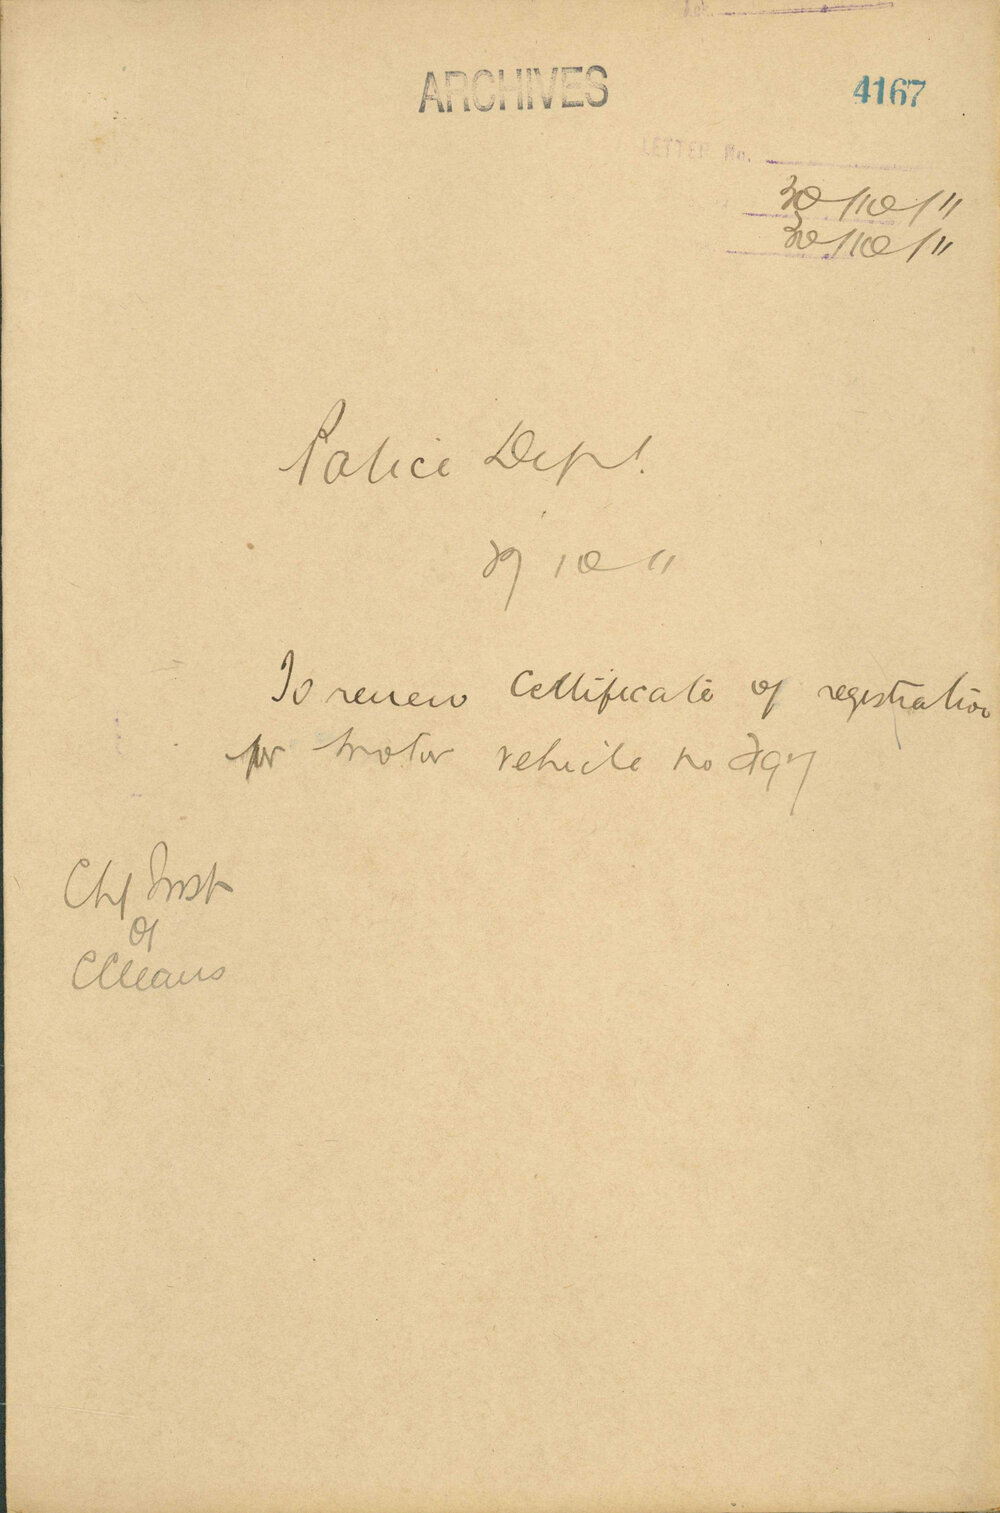 ARCHIVES
4167
LETTER No.
30/10/11
30/10/11
Police Dept.
10 11
To renew Certificate of registration
for motor vehicle no 297
Chf Inst
of
Cleans